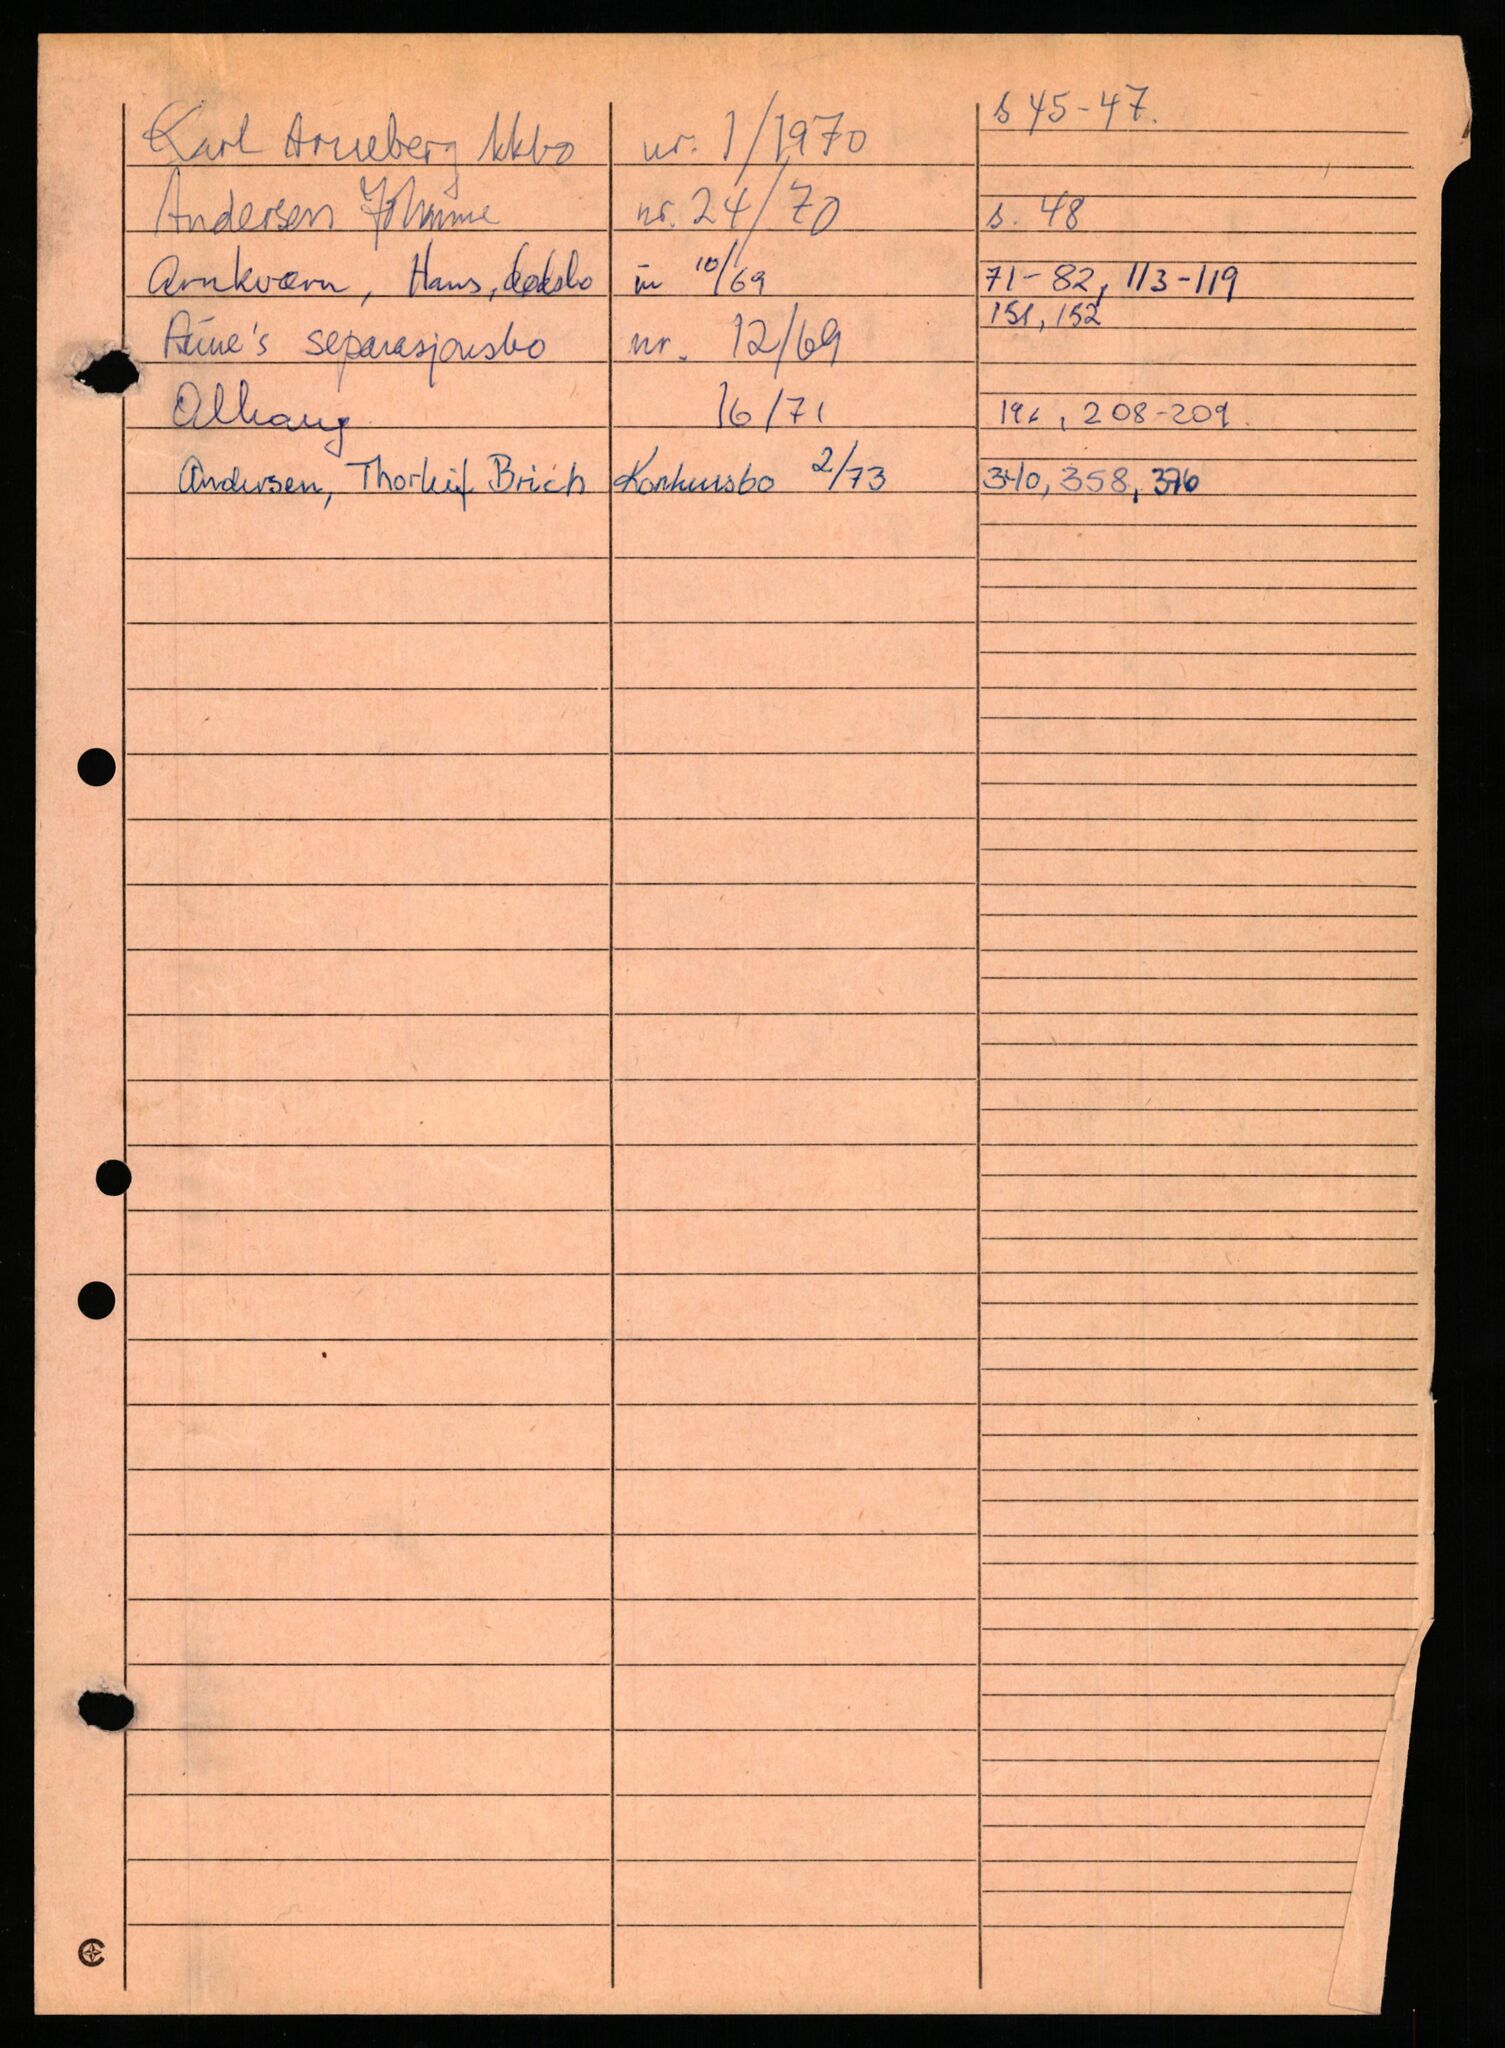 Karl Arneberg kkbo nr. 1/1970 s 45-47.
Andersen Johanne nr. 24/70 s. 48
Arnkværn, Hans, dødsbo nr 10/69 71-82, 113-119
151, 152
Aune's separasjonsbo nr. 12/69
Alhaug 16/71 196, 208-209.
Andersen, Thorleif Brich Konkursbo 2/73 340, 358, 376